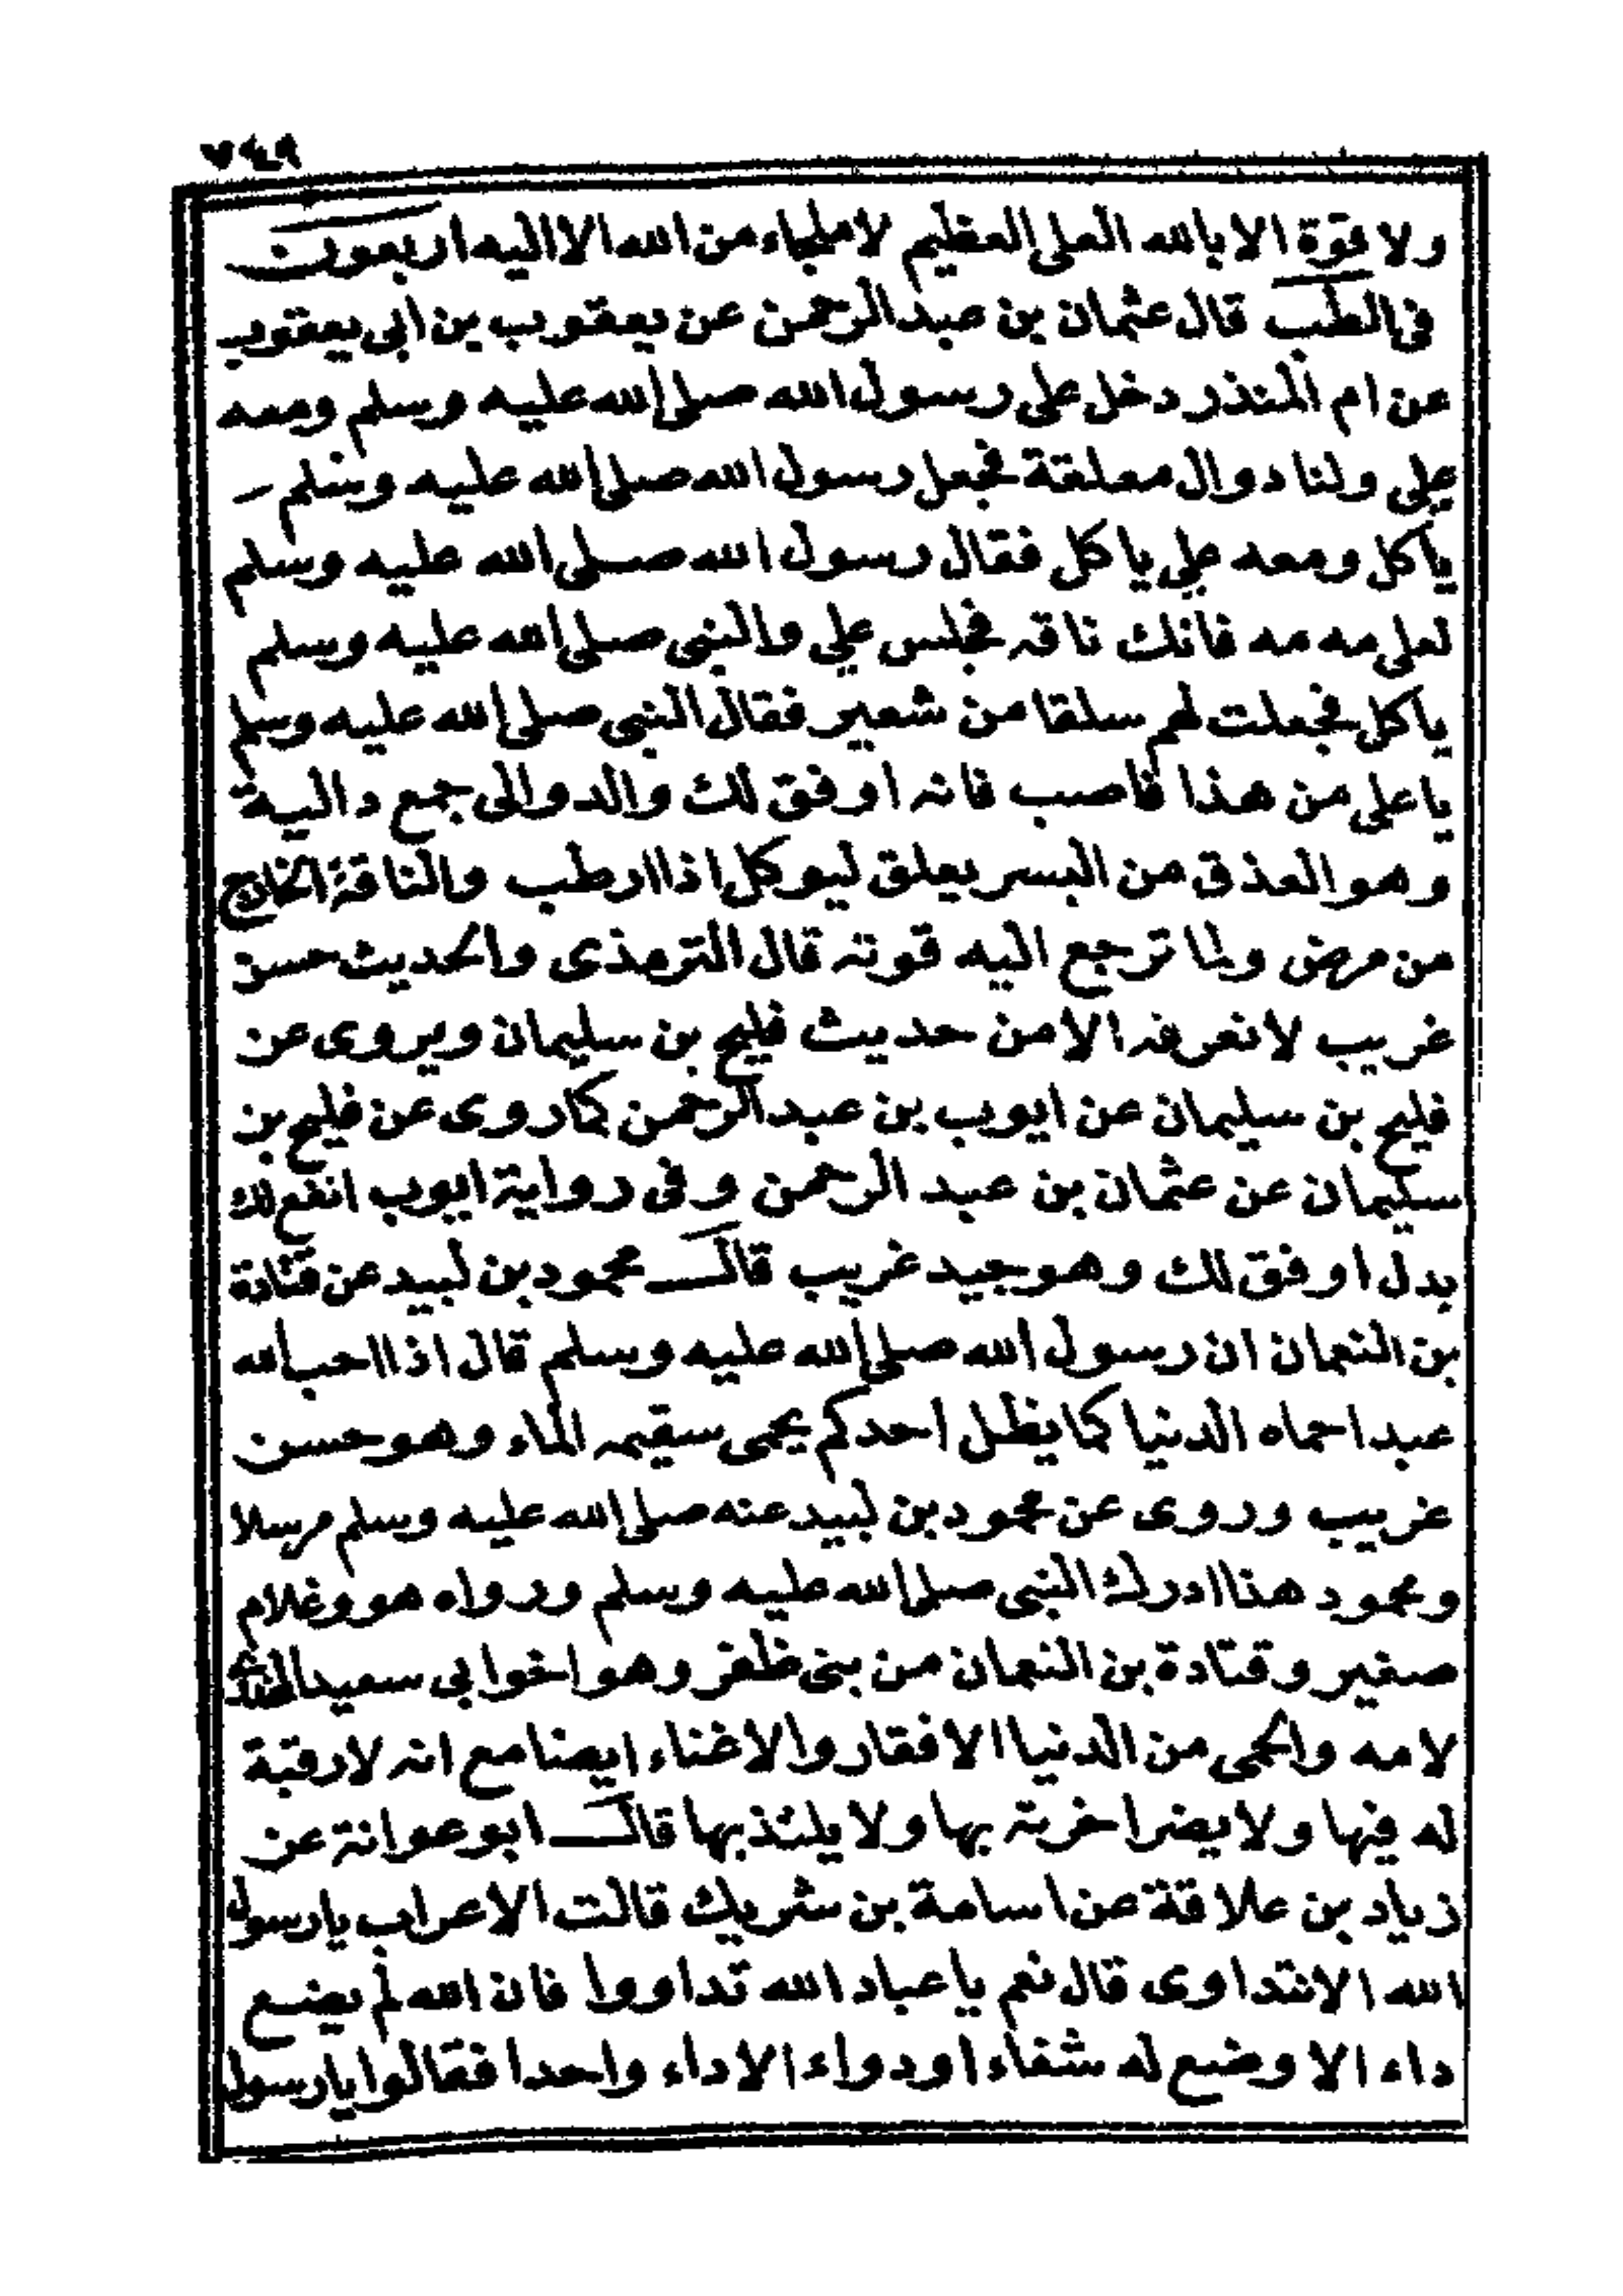 ٧٤٩
ولا قوة الا بالله العلى العظيم لا ملجاء من الله الا اليه اربعون
فى الطب قال عثمان بن عبد الرحمن عن يعقوب بن ابى يعقوب
عن ام المنذر دخل على رسول الله صلى الله عليه وسلم ومعه
على ولنا دوال معلقة فجعل رسول الله صلى الله عليه وسلم
ياكل ومعه على ياكل فقال رسول الله صلى الله عليه وسلم
لعلى مه مه فانك ناقه فجلس على والنبى صلى الله عليه وسلم
ياكل فجعلت لهم سلقا من شعير فقال النبى صلى الله عليه وسلم
يا على من هذا فاصب فانه اوفق لك والدوالى جمع دالية
وهو العذق من البسر يعلق ليوكل اذا ارطب والناقة الخارج
من مرض ولما ترجع اليه قوته قال الترمذى والحديث حسن
غريب لا نعرفه الا من حديث فليح بن سليمان ويروى عن
فليح بن سليمان عن ايوب بن عبد الرحمن كما روى عن فليح بن
سليمان عن عثمان بن عبد الرحمن وفى رواية ايوب انفع لك
بدل اوفق لك وهو جيد غريب قال محمود بن لبيد عن قتادة
بن النعمان ان رسول الله صلى الله عليه وسلم قال اذا احب الله
عبدا حماه الدنيا كما يظل احدكم يحمى سقيمه الماء وهو حسن
غريب وروى عن محمود بن لبيد عنه صلى الله عليه وسلم مرسلا
ومحمود هذا ادرك النبى صلى الله عليه وسلم ورواه هو وغلام
صغير وقتادة بن النعمان من بنى ظفر وهو اخو ابى سعيد
لامه والحمى من الدنيا الافقار والاغناء ايضا مع انه لا رقبة
له فيها ولا يضر اخرته بها ولا يلتذ بها قال ابو عوانة عن
زياد بن علاقة عن اسامة بن شريك قالت الاعراب يا رسول
الله الا نتداوى قال نعم يا عباد الله تداووا فان الله لم يضع
داء الا وضع له شفاء او دواء الا داء واحدا فقالوا يا رسول